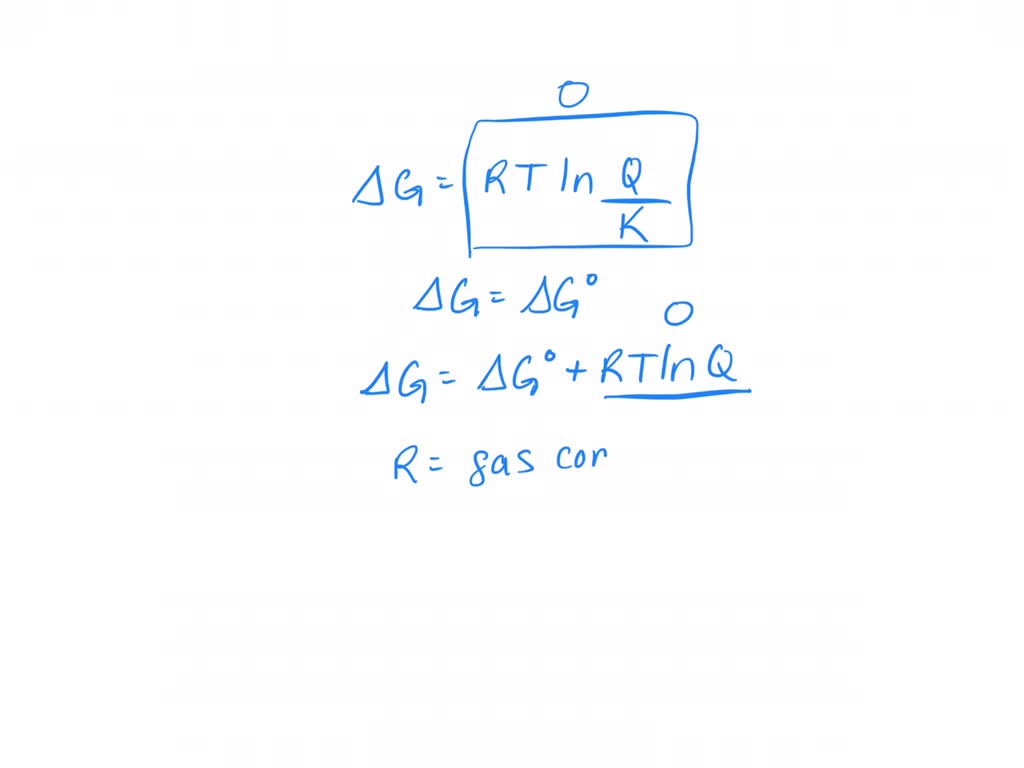 0
ΔG = RT ln Q/K
ΔG = ΔG°
0
ΔG = ΔG° + RT ln Q
R = gas con